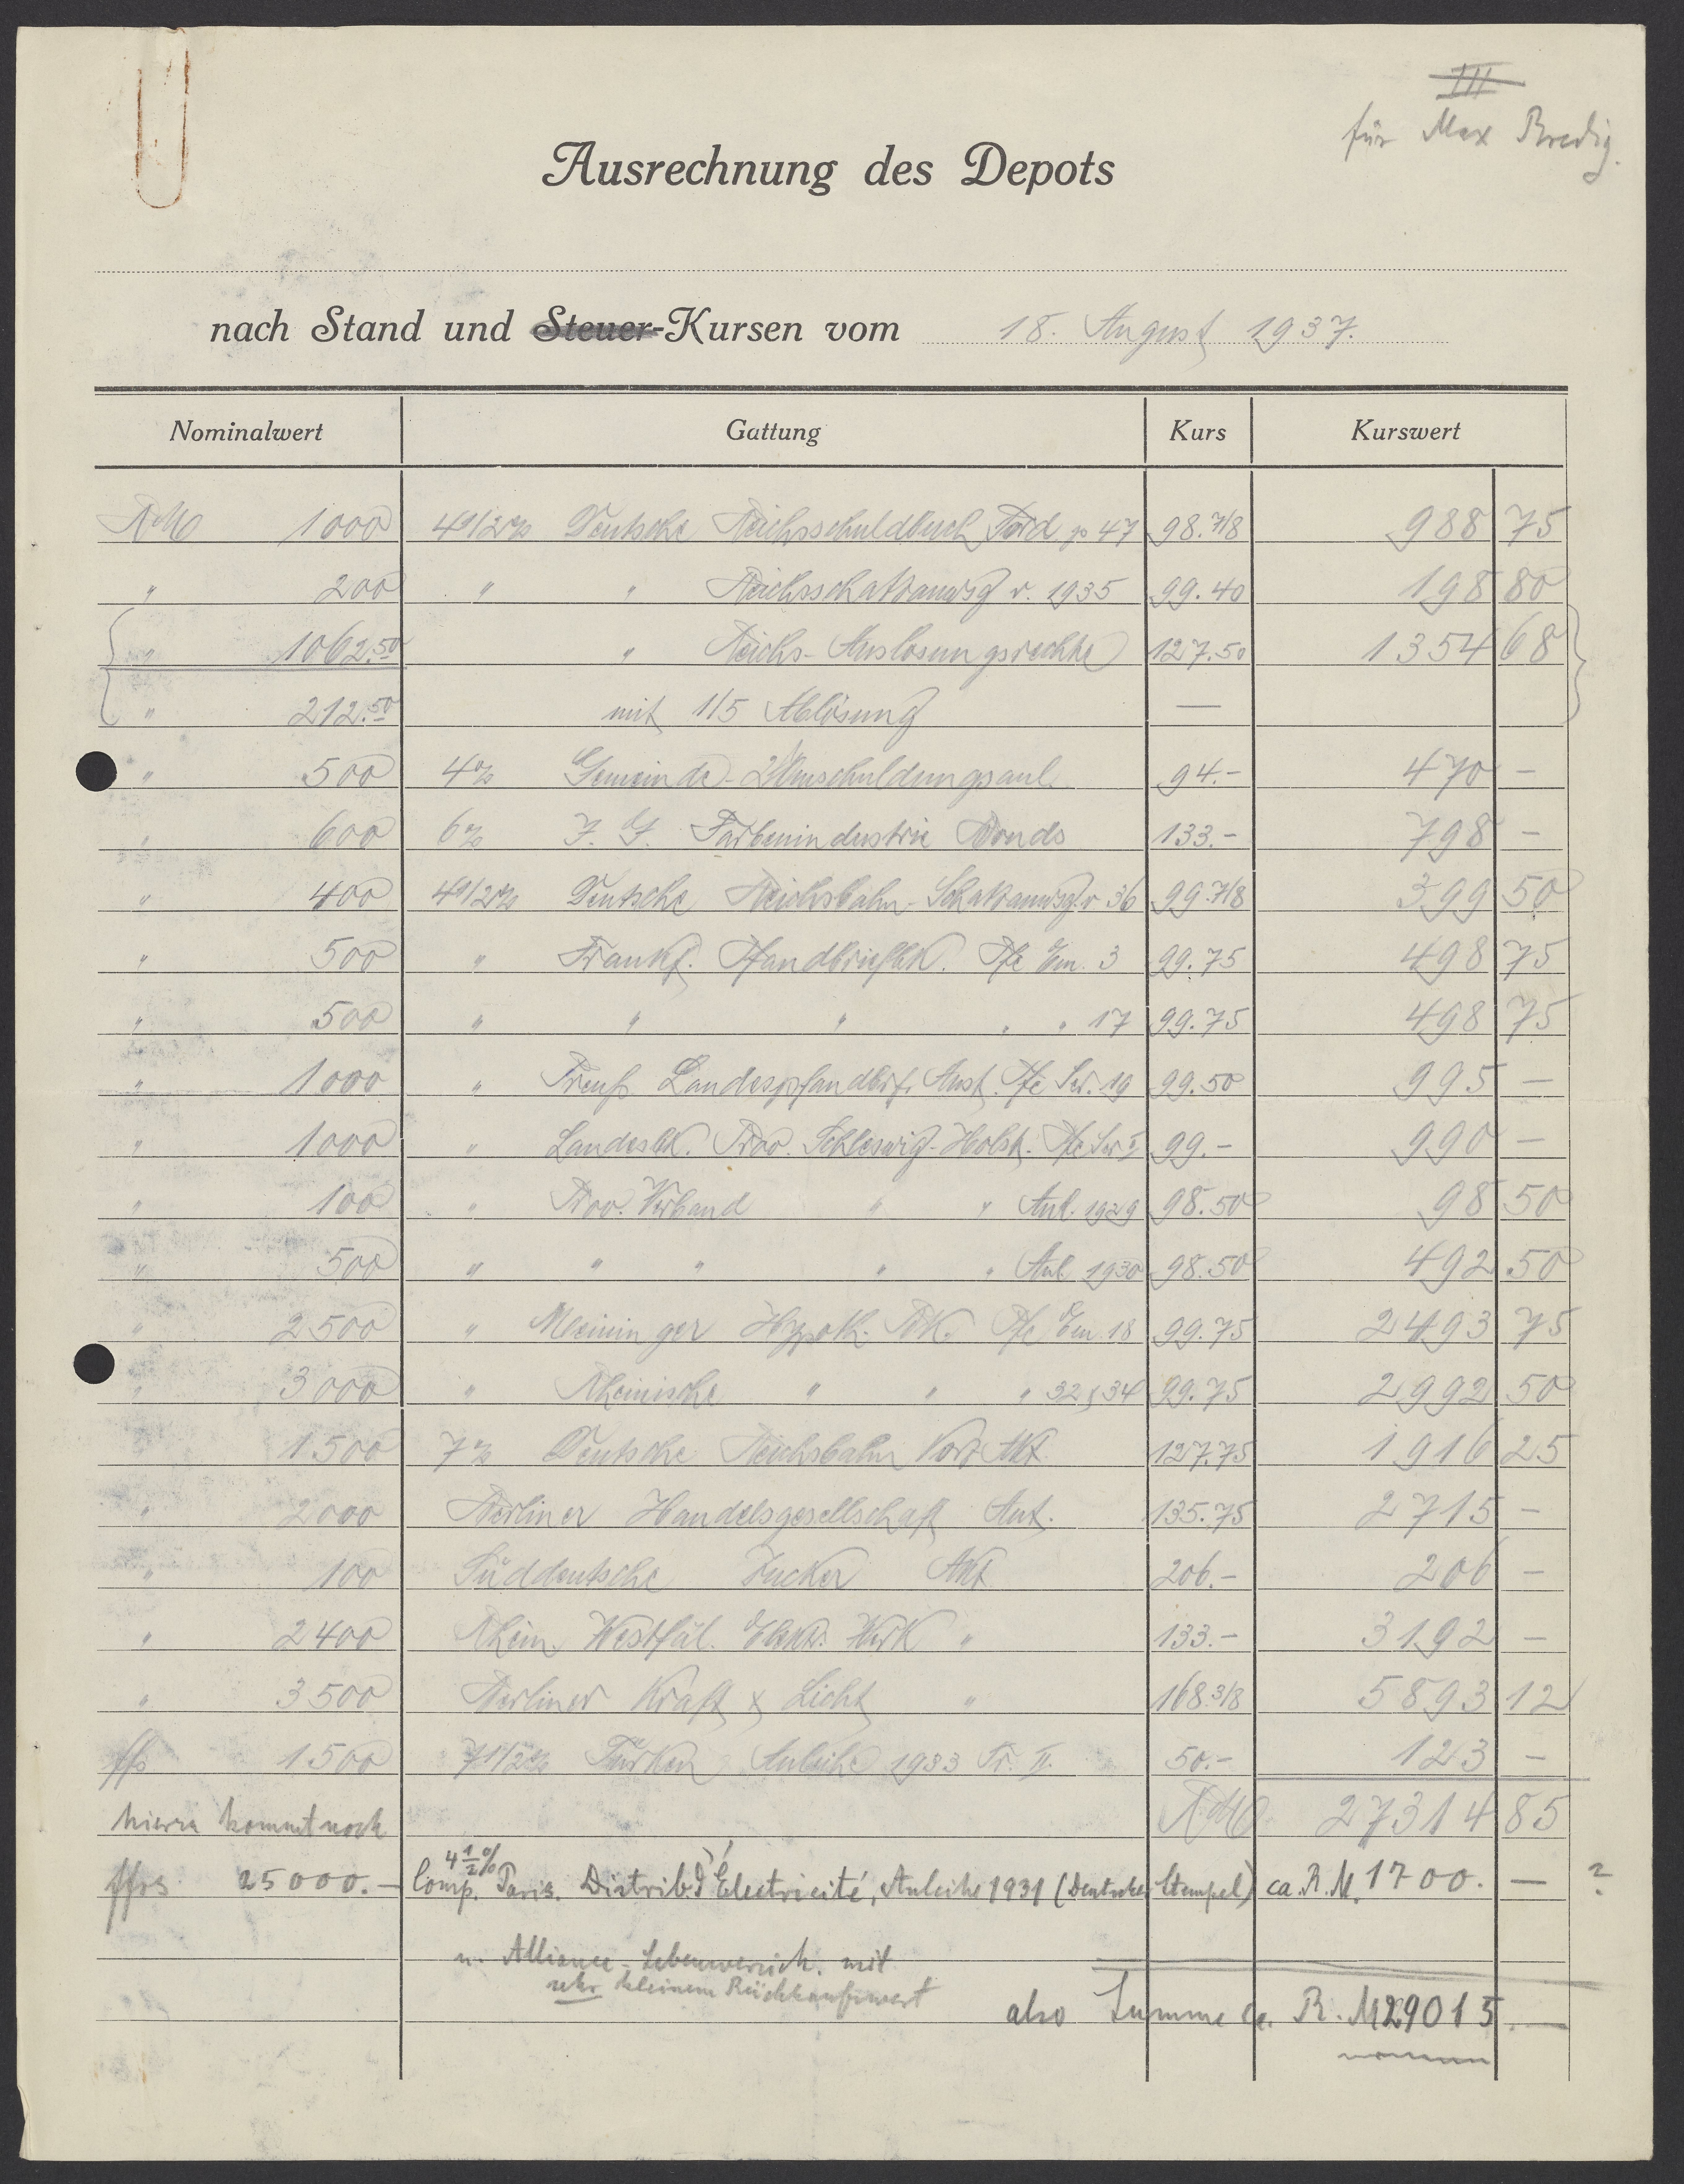 III
für Max Bredig.
Ausrechnung des Depots
nach Stand und Steuer-Kursen vom 18. August 1937.
Nominalwert Gattung Kurs Kurswert
RM 1000 4 1/2% Deutsche Reichsschuldbuch Ford p 47 98.7/8 988 75
" 200 " " Reichsschatzanwsg v. 1935 99.40 198 80
" 1062.50 " Reichs-Auslosungsrechte 127.50 1354 68
" 212.50 mit 1/5 Ablösung —
" 500 4% Gemeinde-Umschuldungsanl. 94.- 470 -
" 600 6% I. G. Farbenindustrie Bonds 133.- 798 -
" 400 4 1/2% Deutsche Reichsbahn-Schatzanwsg. v 36 99.7/8 399 50
" 500 " Frankf. Pfandbriefbk. Pfe Em. 3 99.75 498 75
" 500 " " " " " 17 99.75 498 75
" 1000 " Preuß. Landespfandbrf. Anst. Pfe Ser. 19 99.50 995 —
" 1000 " Landesbk. Prov. Schleswig-Holst. Pfe Ser I 99.- 990 —
" 100 " Prov. Verband " " Anl. 1929 98.50 98 50
" 500 " " " " " Anl. 1930 98.50 492 50
" 2500 " Meininger Hypoth. Bk. Pfe Em. 18 99.75 2493 75
" 3000 " Rheinische " " " 32 & 34 99.75 2992 50
" 1500 7% Deutsche Reichsbahn Vorz Akt. 127.75 1916 25
" 2000 Berliner Handelsgesellschaft Ant. 135.75 2715 -
" 100 Süddeutsche Zucker Akt 206.- 206 -
" 2400 Rhein. Westfäl. Elektr. Werk " 133.- 3192 -
" 3500 Berliner Kraft & Licht " 168.3/8 5893 12
ffs 1500 7 1/2% Türken Anleihe 1933 Tr. II. 50.- 123 -
RM 27314 85
hierzu kommt noch
ffrs 25000.- 4 1/2% Comp. Paris. Distrib. d'Electricité, Anleihe 1931 (Deutscher Stempel) ca. R.M. 1700. — ?
u. Alliance-Lebensversich. mit
sehr kleinem Rückkaufswert
also Summe ca. R.M 29015.—